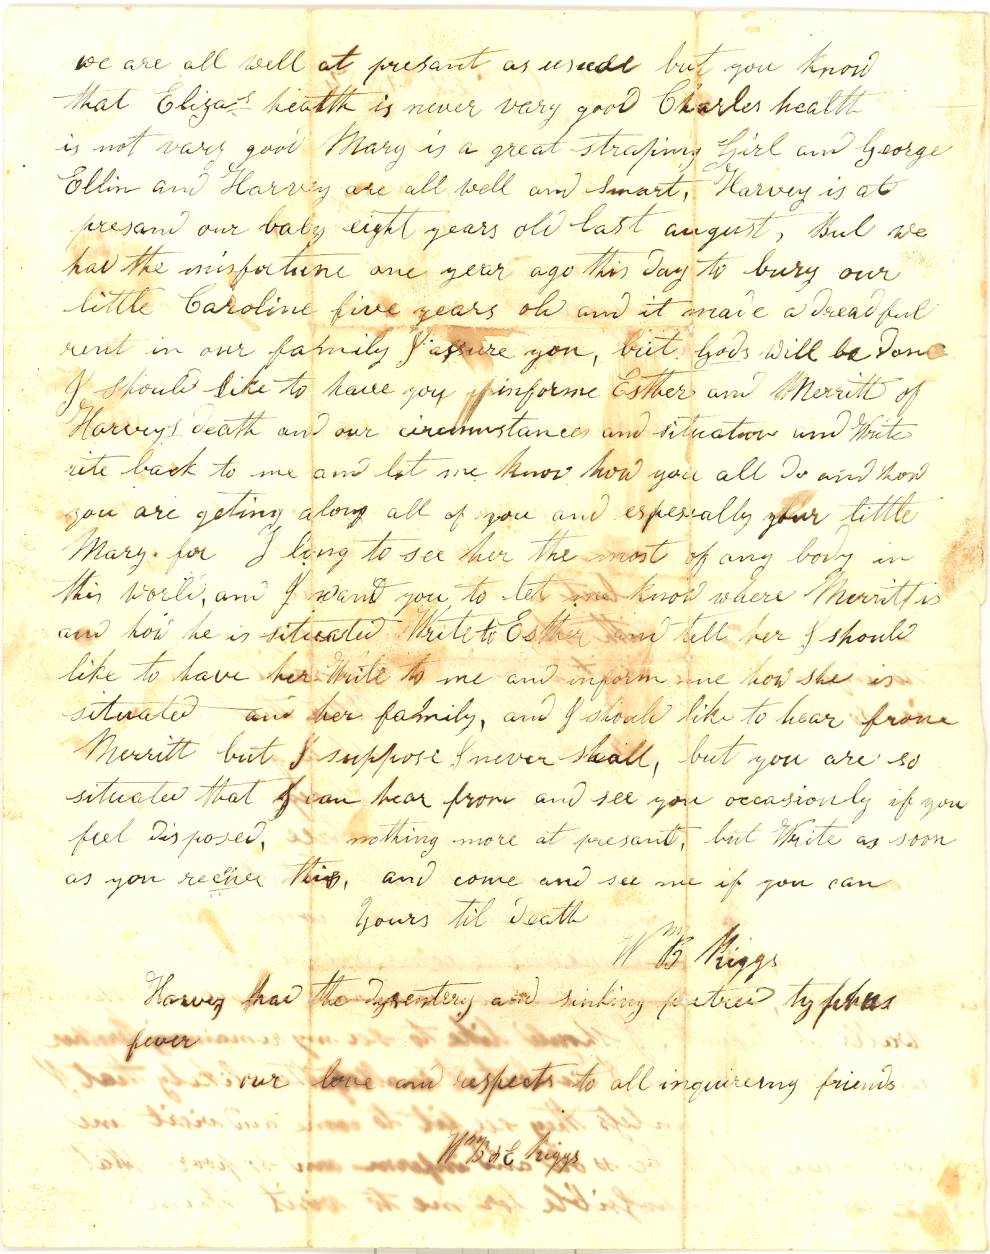 we are all well at presant as usual but you know
that Elizas health is never vary good Charles health
is not vary good Mary is a great straping Girl and George
Ellin and Harvey are all well and Smart, Harvey is at
presand our baby eight years old last august, But we
had the misfortune one year ago this day to bury our
little Caroline five years old and it made a dreadful
rent in our family I assure you, but Gods will be done
I should like to have you informe Esther and Merritt of
Harveys death and our circumstances and situation and Write
rite back to me and let me know how you all do and how
you are geting along all of you and espescally your little
Mary. for I long to see her the most of any body in
this world, and I want you to let me know where Merritt is
and how he is situated Write to Esther and tell her I should
like to have her Write to me and inform me how she is
situated and her family, and I should like to hear from
Merritt but I suppose I never shall, but you are so
situated that I can hear from and see you occasionly if you
feel disposed, nothing more at presant, but Write as soon
as you receive this, and come and see me if you can
Yours til death
Wm B Riggs
Harvey had the dysentery and sinking putred typhus
fever
our love and respects to all inquireing friends
Wm B & E Riggs